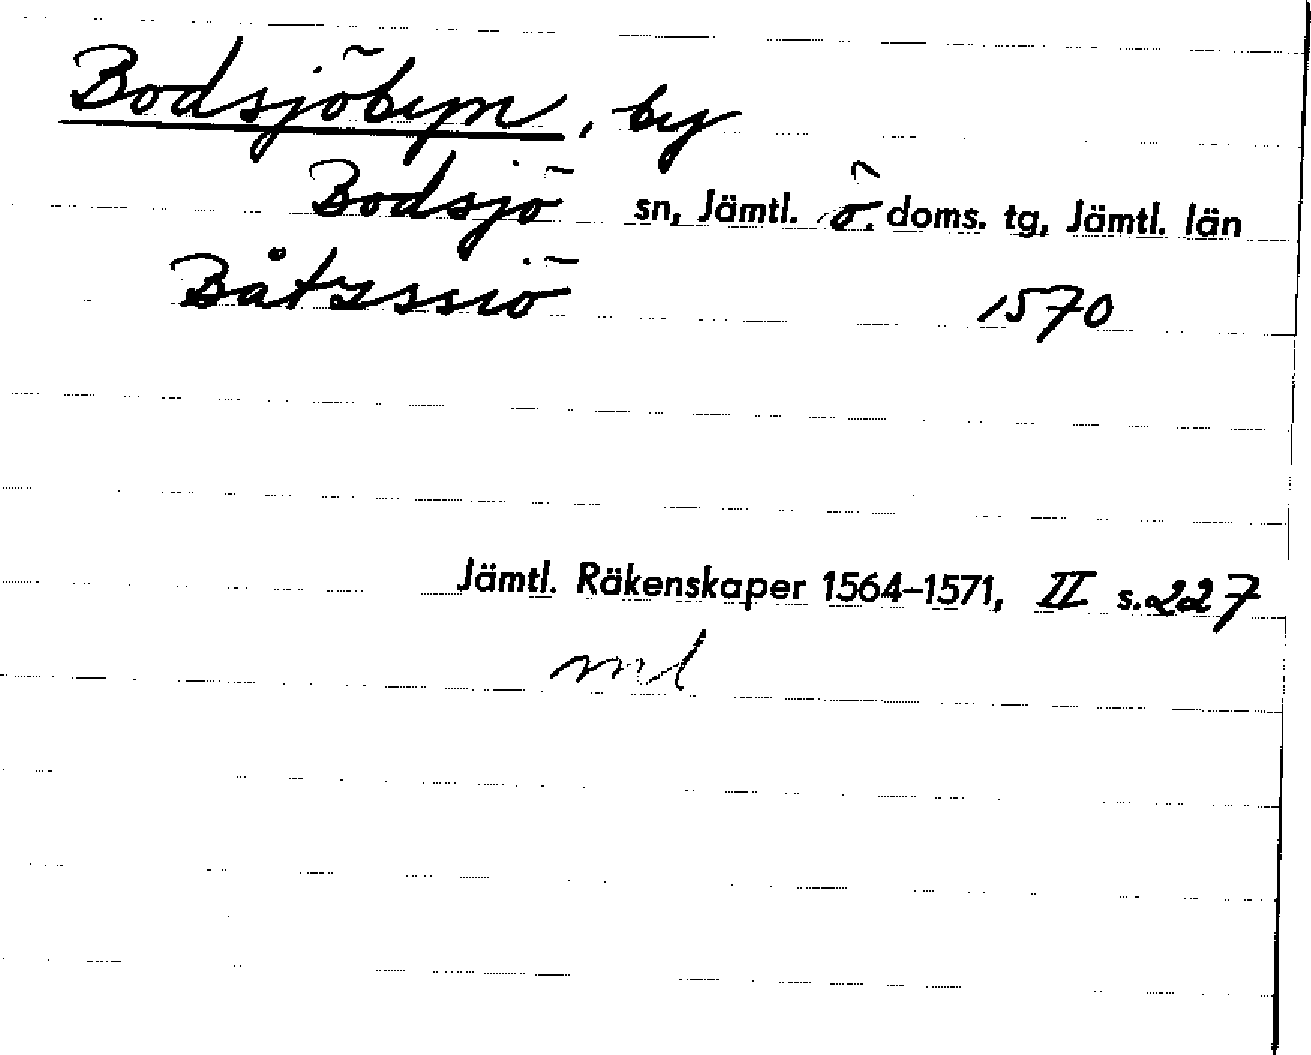 Bodsjöbyn, by
Bodsjö sn, Jämtl. ö. doms. tg, Jämtl. län
Båtzssiö 1570
Jämtl. Räkenskaper 1564–1571, II s. 227
ml